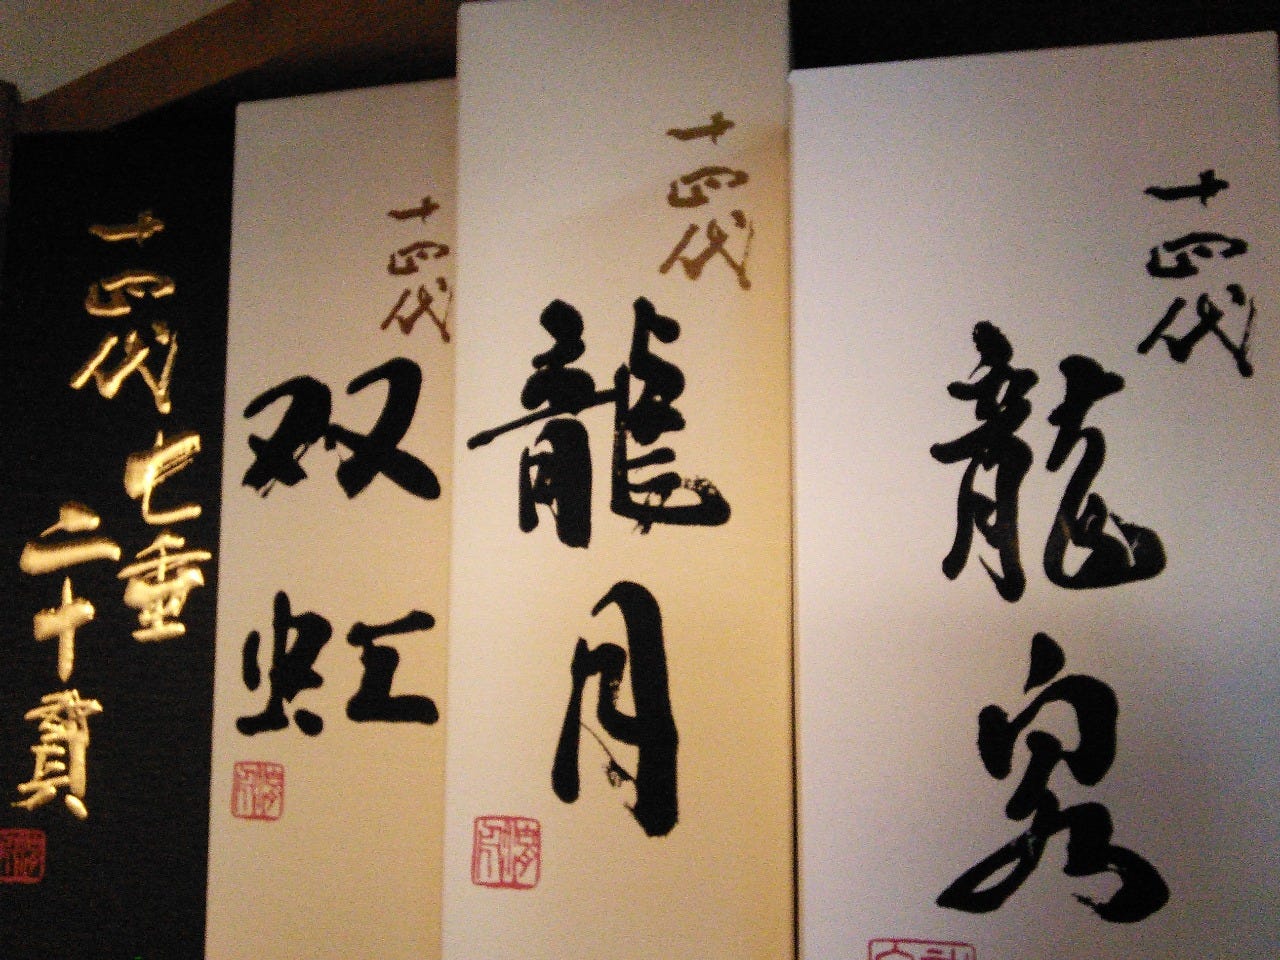 十四代
七垂
二十貫
十四代
双
虹
十四代
龍
月
十四代
龍
泉